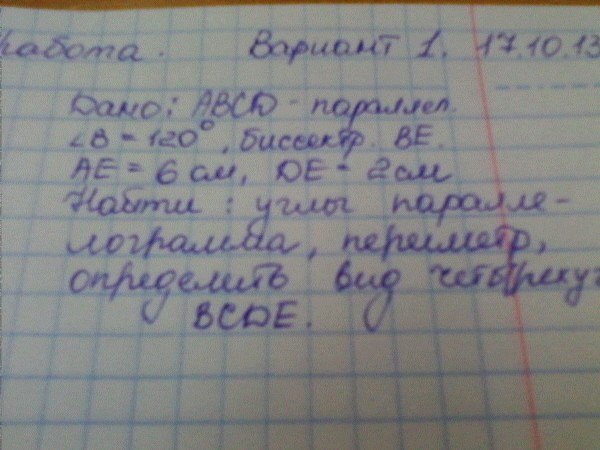 работа. Вариант 1. 17.10.13
Дано: ABCD - параллел.
∠B = 120°, биссектр. BE.
AE = 6 см, DE - 2 см
Найти: углы паралле-
лограмма, периметр,
определить вид четырехуг
BCDE.